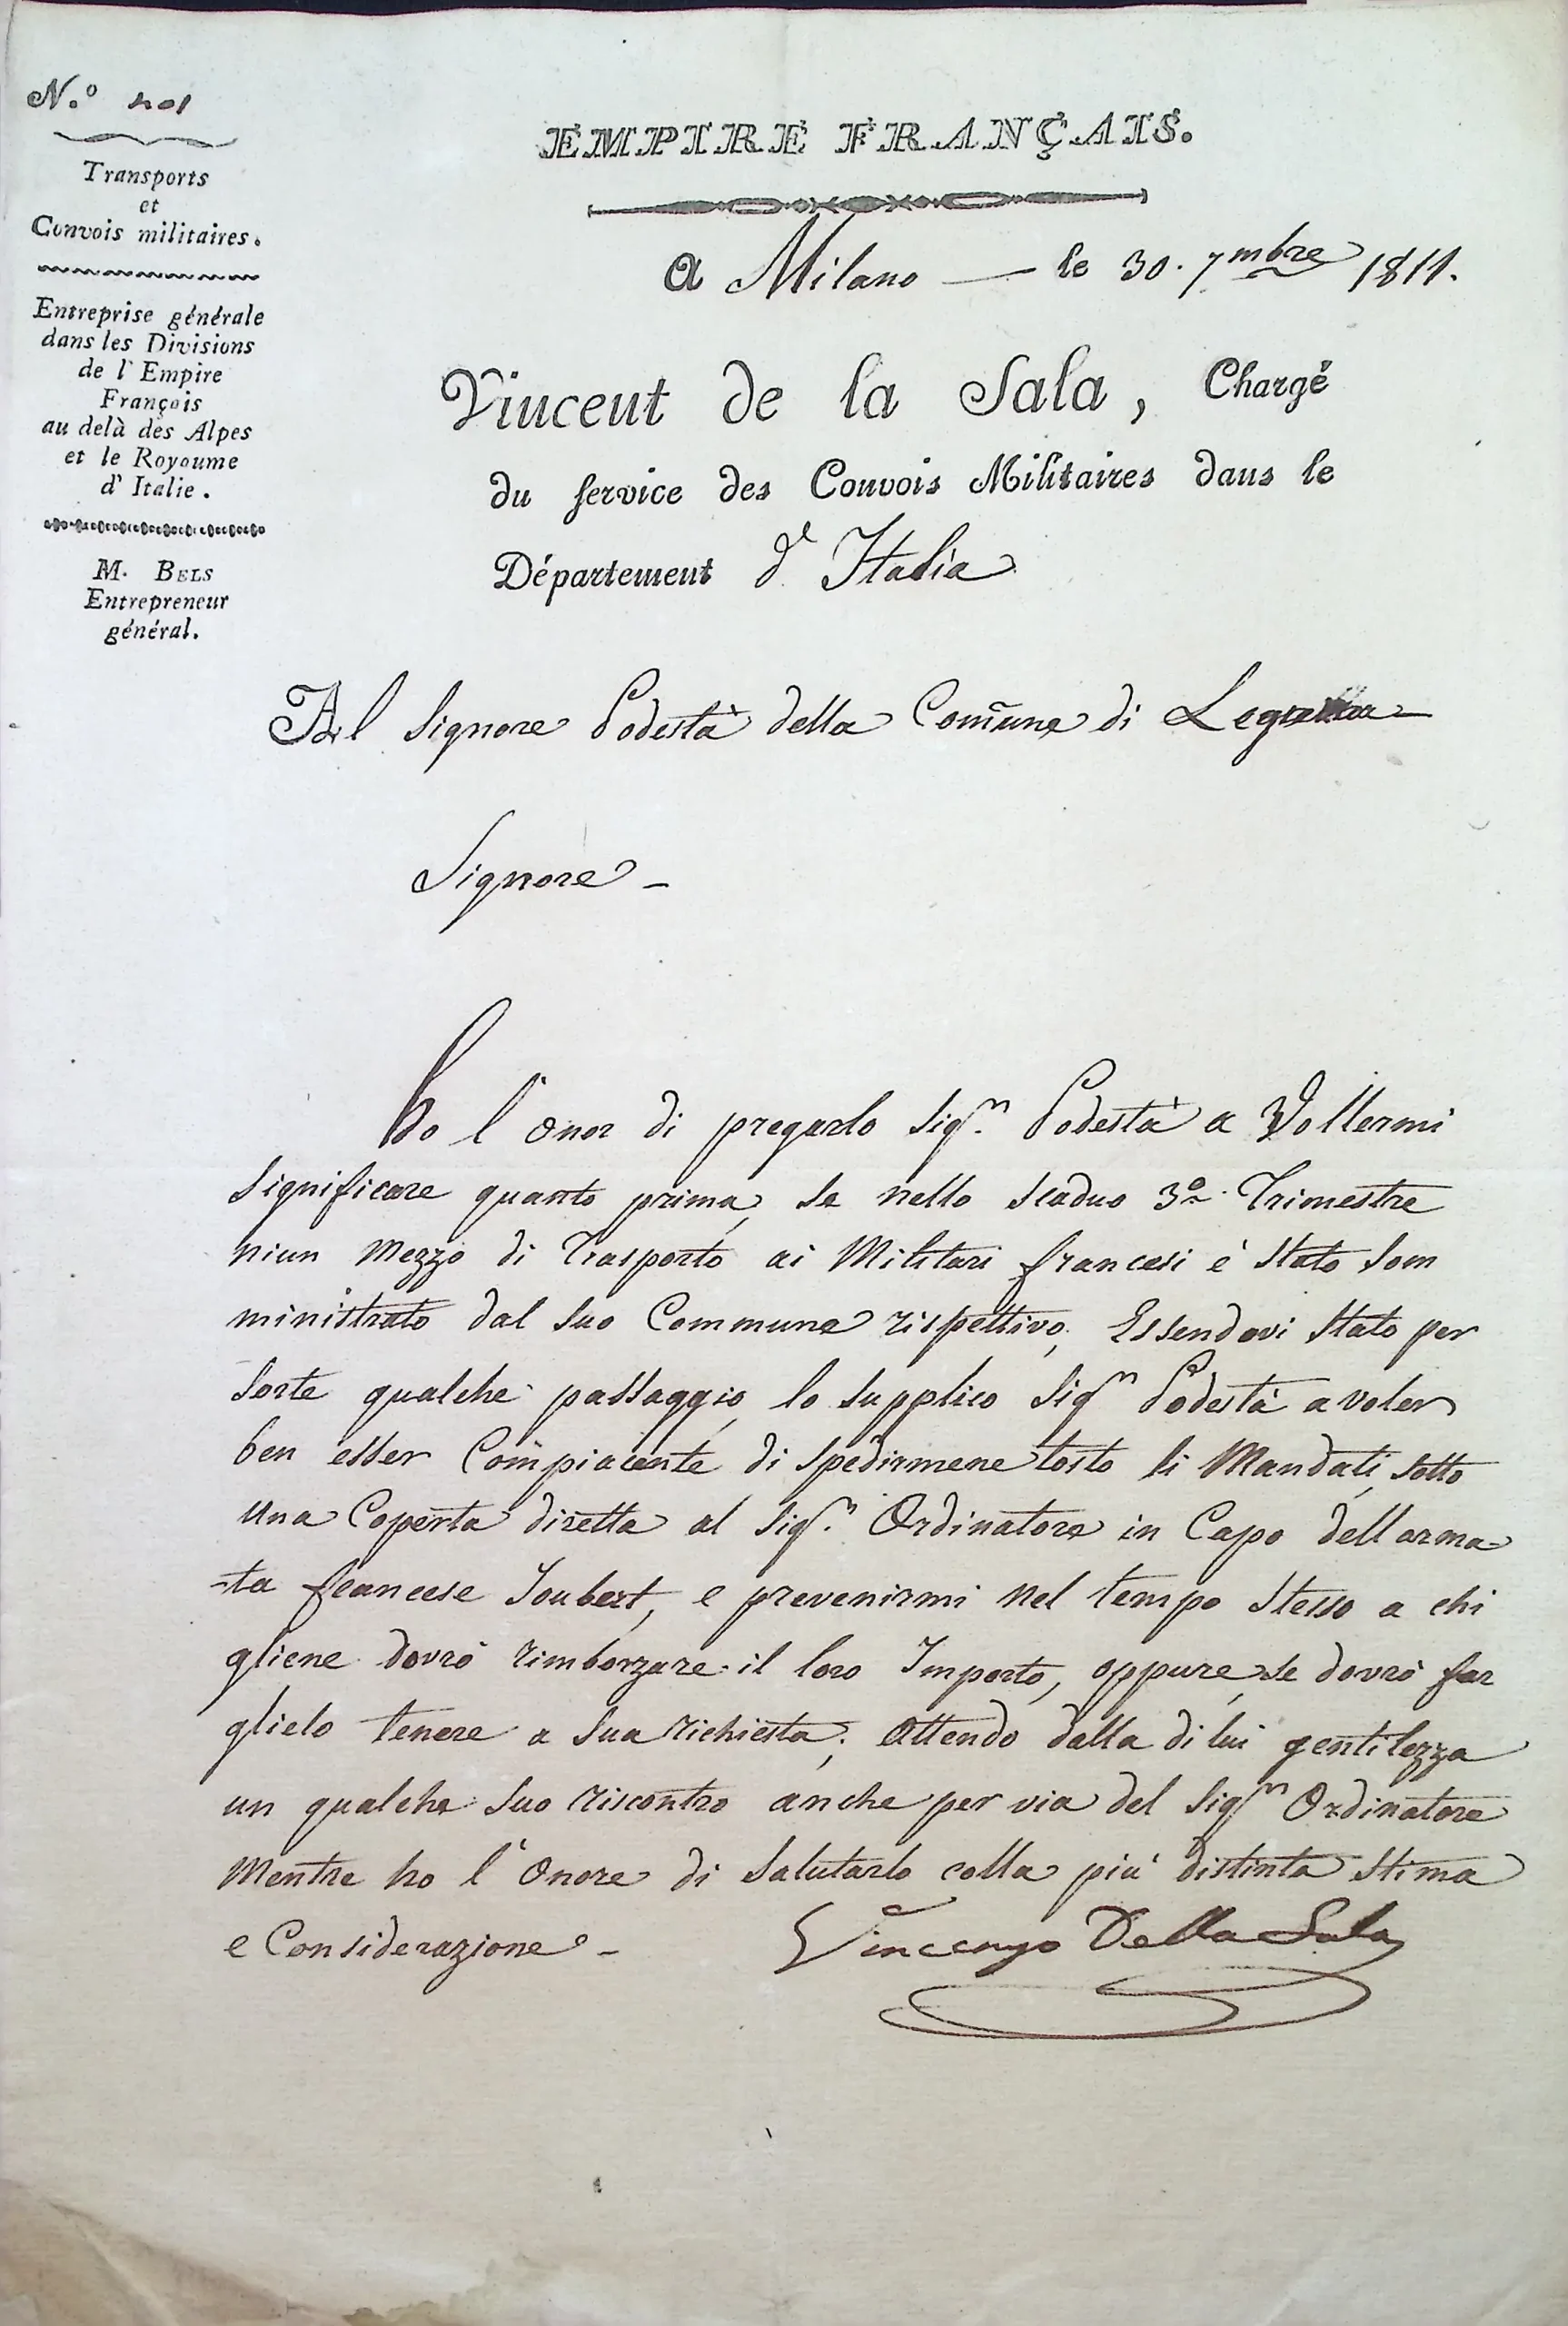 N.º 401
Transports
et
Convois militaires.
Entreprise générale
dans les Divisions
de l'Empire
Français
au delà des Alpes
et le Royoume
d'Italie.
M. BELS
Entrepreneur
général.
EMPIRE FRANÇAIS.
A Milano — le 30. 7mbre 1811.
Vincent de la Sala, Chargé
du service des Convois Militaires dans le
Département d'Italia
Al Signore Podestà della Com̃une di
Signore –
Ho l'onor di pregarlo Sigr. Podestà a Vollermi
significare quanto prima, se nello scaduo 3º Trimestre
niun Mezzo di Trasporto ai Militari francesi è stato som
ministrato dal suo Commune rispettivo, Essendovi stato per
sorte qualche passaggio, lo supplico Sigr Podestà a voler
ben esser Com̃piacente di spedirmene tosto li Mandati, sotto
una Coperta diretta al Sigr. Ordinatore in Capo dell arma-
-ta francese Joubert, e prevenirmi nel tempo stesso a chi
gliene dovrò rimborzare il loro Importo, oppure, se dovrò far
glielo tenere a sua richiesta; Attendo dalla di lui gentilezza
un qualche suo riscontro anche per via del Sigr Ordinatore
Mentre ho l'onore di salutarlo colla più distinta stima
e Considerazione – Vincenzo Della Sala